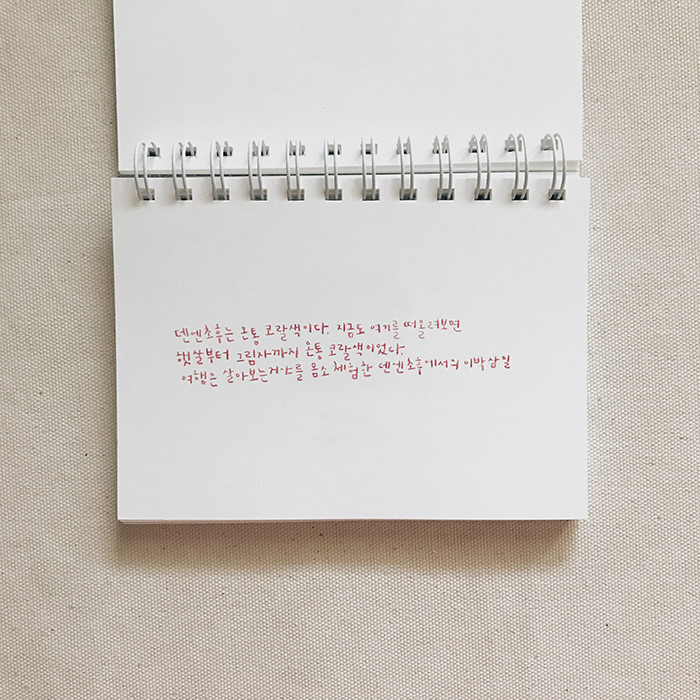 덴엔초후는 온통 코랄색이다. 지금도 여기를 떠올려보면
햇살부터 그림자까지 온통 코랄색이었다.
여행은 살아보는거야를 몸소 체험한 덴엔초후에서의 이박삼일